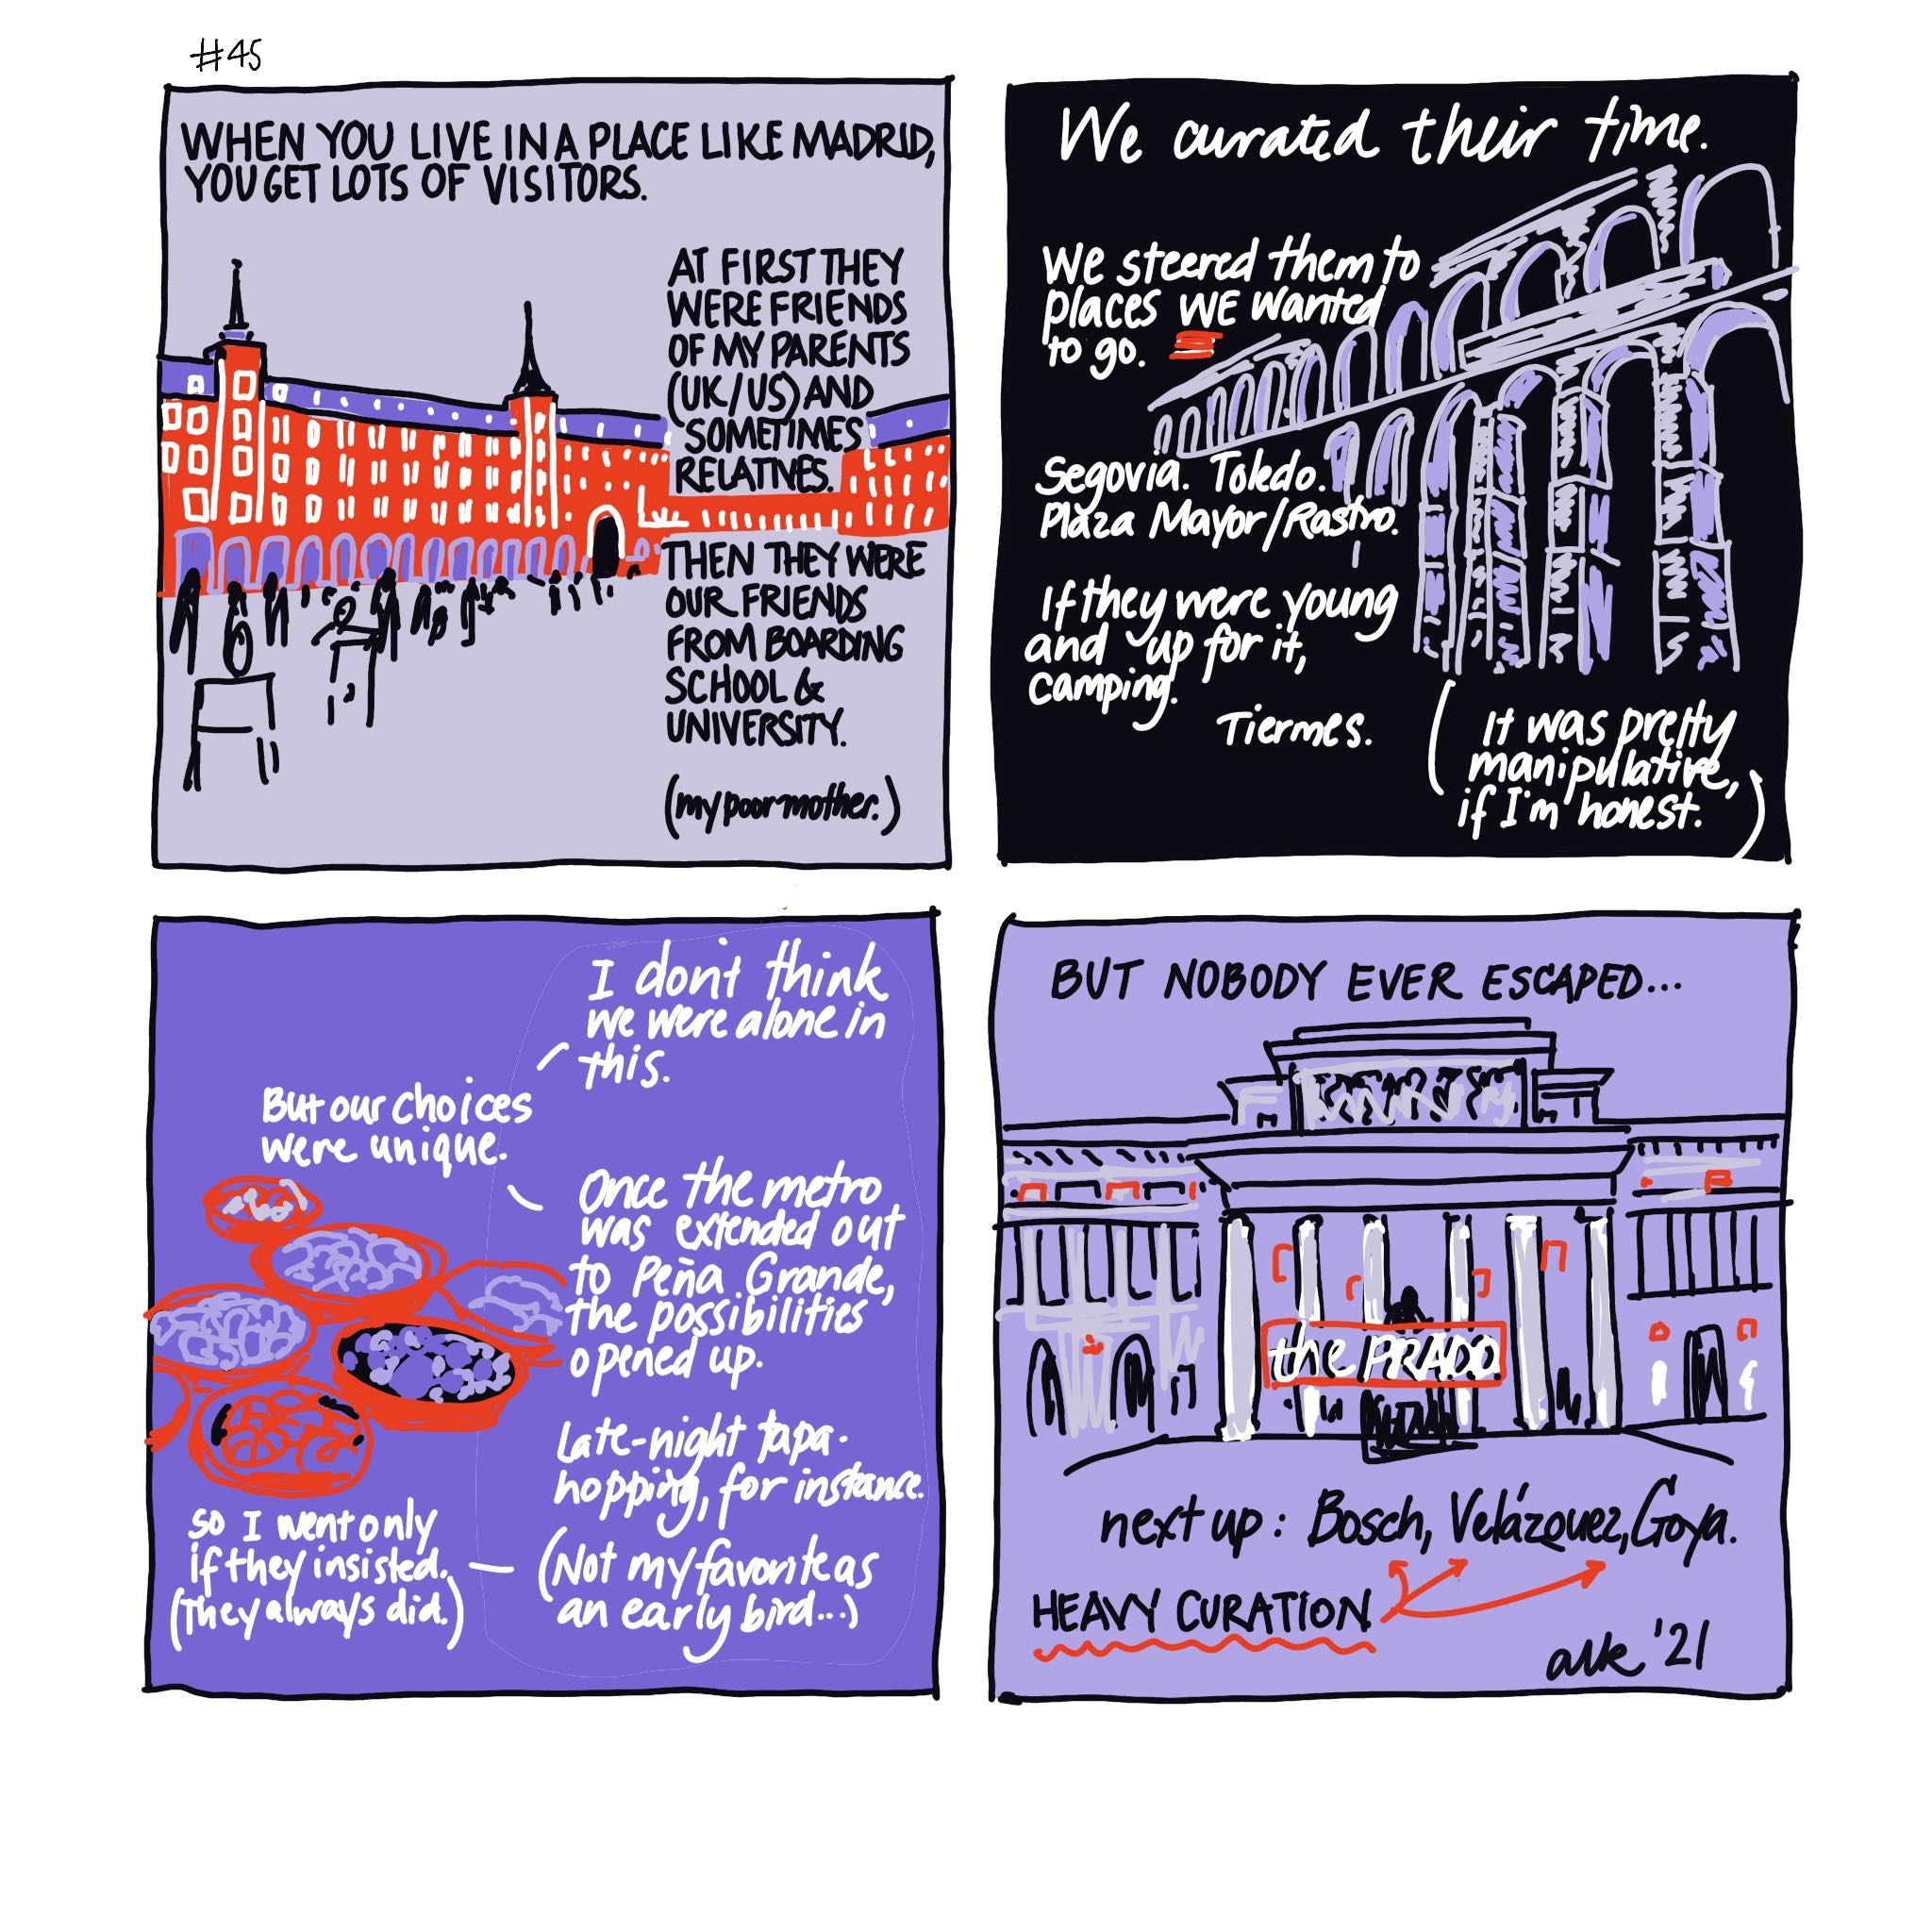 #45
WHEN YOU LIVE IN A PLACE LIKE MADRID,
YOU GET LOTS OF VISITORS.
AT FIRST THEY
WERE FRIENDS
OF MY PARENTS
(UK/US) AND
SOMETIMES
RELATIVES.
THEN THEY WERE
OUR FRIENDS
FROM BOARDING
SCHOOL &
UNIVERSITY.
(my poor mother.)
We curated their time.
We steered them to
places WE wanted
to go.
Segovia. Toledo.
Plaza Mayor/Rastro.
If they were young
and up for it,
camping.
Tiermes.
(It was pretty
manipulative,
if I'm honest.)
I don't think
we were alone in
this.
But our choices
were unique.
Once the metro
was extended out
to Peña Grande,
the possibilities
opened up.
Late-night tapa-
hopping, for instance.
(Not my favorite as
an early bird...)
so I went only
if they insisted.
(They always did.)
BUT NOBODY EVER ESCAPED...
the PRADO
next up: Bosch, Velázquez, Goya.
HEAVY CURATION
avk '21